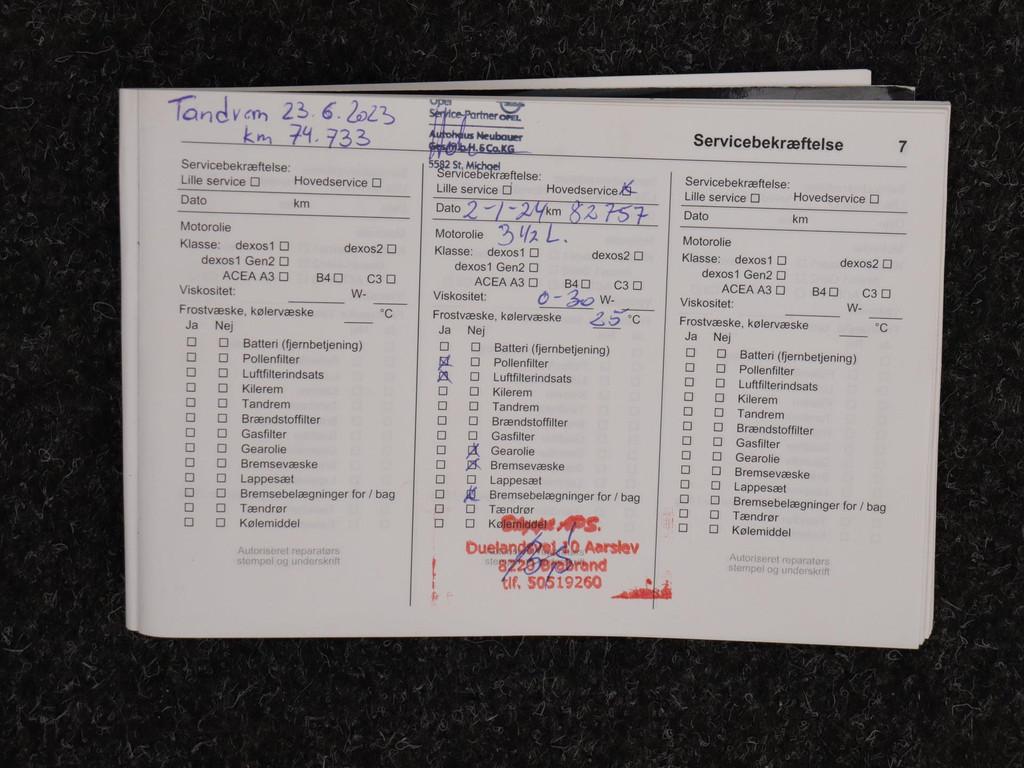 Tandrem 23.6.2023
km 74.733
Opel
Service-Partner OPEL
Autohaus Neubauer
Ges.m.b.H. & Co.KG
5582 St. Michael
Servicebekræftelse 7
Servicebekræftelse:
Lille service ☐ Hovedservice ☐
Dato km
Motorolie
Klasse: dexos1 ☐ dexos2 ☐
dexos1 Gen2 ☐
ACEA A3 ☐ B4 ☐ C3 ☐
Viskositet: ______ W- ____
Frostvæske, kølervæske ____ °C
Ja Nej
☐ ☐ Batteri (fjernbetjening)
☐ ☐ Pollenfilter
☐ ☐ Luftfilterindsats
☐ ☐ Kilerem
☐ ☐ Tandrem
☐ ☐ Brændstoffilter
☐ ☐ Gasfilter
☐ ☐ Gearolie
☐ ☐ Bremsevæske
☐ ☐ Lappesæt
☐ ☐ Bremsebelægninger for / bag
☐ ☐ Tændrør
☐ ☐ Kølemiddel
Autoriseret reparatørs
stempel og underskrift
Servicebekræftelse:
Lille service ☐ Hovedservice ☒
Dato 2-1-24 km 82757
Motorolie 3 1/2 L.
Klasse: dexos1 ☐ dexos2 ☐
dexos1 Gen2 ☐
ACEA A3 ☐ B4 ☐ C3 ☐
Viskositet: 0-30 W- ____
Frostvæske, kølervæske 25 °C
Ja Nej
☐ ☐ Batteri (fjernbetjening)
☒ ☐ Pollenfilter
☒ ☐ Luftfilterindsats
☐ ☐ Kilerem
☐ ☐ Tandrem
☐ ☐ Brændstoffilter
☐ ☐ Gasfilter
☐ ☒ Gearolie
☐ ☒ Bremsevæske
☐ ☐ Lappesæt
☐ ☒ Bremsebelægninger for / bag
☐ ☐ Tændrør
☐ ☐ Kølemiddel
Duelandsvej 10 Aarslev
8220 Brabrand
tlf. 50519260
Servicebekræftelse:
Lille service ☐ Hovedservice ☐
Dato km
Motorolie
Klasse: dexos1 ☐ dexos2 ☐
dexos1 Gen2 ☐
ACEA A3 ☐ B4 ☐ C3 ☐
Viskositet: ______ W- ____
Frostvæske, kølervæske ____ °C
Ja Nej
☐ ☐ Batteri (fjernbetjening)
☐ ☐ Pollenfilter
☐ ☐ Luftfilterindsats
☐ ☐ Kilerem
☐ ☐ Tandrem
☐ ☐ Brændstoffilter
☐ ☐ Gasfilter
☐ ☐ Gearolie
☐ ☐ Bremsevæske
☐ ☐ Lappesæt
☐ ☐ Bremsebelægninger for / bag
☐ ☐ Tændrør
☐ ☐ Kølemiddel
Autoriseret reparatørs
stempel og underskrift